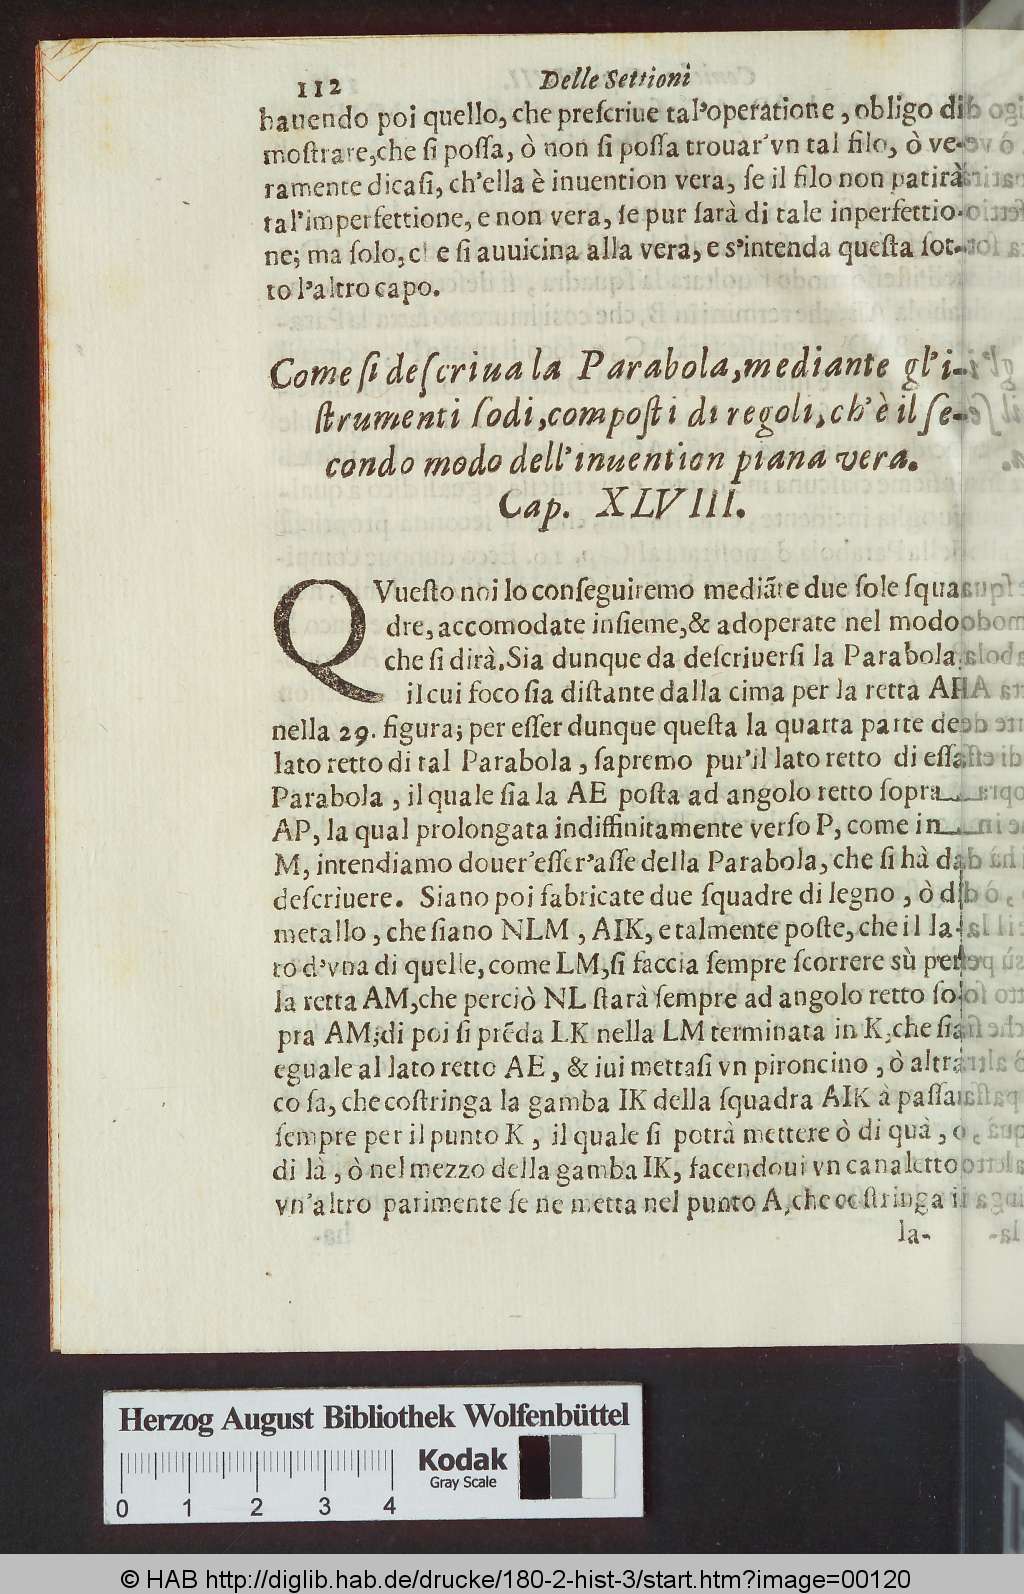 112 Delle Settioni
hauendo poi quello, che preſcriue tal'operatione, obligo di
moſtrare, che ſi poſſa, ò non ſi poſſa trouar'vn tal filo, ò ve-
ramente dicaſi, ch'ella è inuention vera, ſe il filo non patirà
tal'imperfettione, e non vera, ſe pur ſarà di tale inperfettio-
ne; ma ſolo, c e ſi auuicina alla vera, e s'intenda queſta ſot-
to l'altro capo.
Come ſi deſcriua la Parabola, mediante gl'i-
ſtrumenti ſodi, compoſti di regoli, ch'è il ſe-
condo modo dell'inuention piana vera.
Cap. XLVIII.
QVueſto noi lo conſeguiremo mediãte due ſole ſqua-
dre, accomodate inſieme, & adoperate nel modo
che ſi dirà. Sia dunque da deſcriuerſi la Parabola
il cui foco ſia diſtante dalla cima per la retta AP
nella 29. figura; per eſſer dunque queſta la quarta parte de
lato retto di tal Parabola, ſapremo pur'il lato retto di eſſa
Parabola, il quale ſia la AE poſta ad angolo retto ſopra
AP, la qual prolongata indiffinitamente verſo P, come in
M, intendiamo douer'eſſer'aſſe della Parabola, che ſi hà da
deſcriuere. Siano poi fabricate due ſquadre di legno, ò di
metallo, che ſiano NLM, AIK, e talmente poſte, che il la-
to d'vna di quelle, come LM, ſi faccia ſempre ſcorrere sù per
la retta AM, che perciò NL ſtarà ſempre ad angolo retto ſo-
pra AM; di poi ſi prẽda LK nella LM terminata in K, che ſia
eguale al lato retto AE, & iui mettaſi vn pironcino, ò altra
coſa, che coſtringa la gamba IK della ſquadra AIK à paſſar
ſempre per il punto K, il quale ſi potrà mettere ò di quà, o
di là, ò nel mezzo della gamba IK, facendoui vn canaletto
vn'altro parimente ſe ne metta nel punto A, che coſtringa il
la-
Herzog August Bibliothek Wolfenbüttel
Kodak
Gray Scale
0 1 2 3 4
© HAB http://diglib.hab.de/drucke/180-2-hist-3/start.htm?image=00120